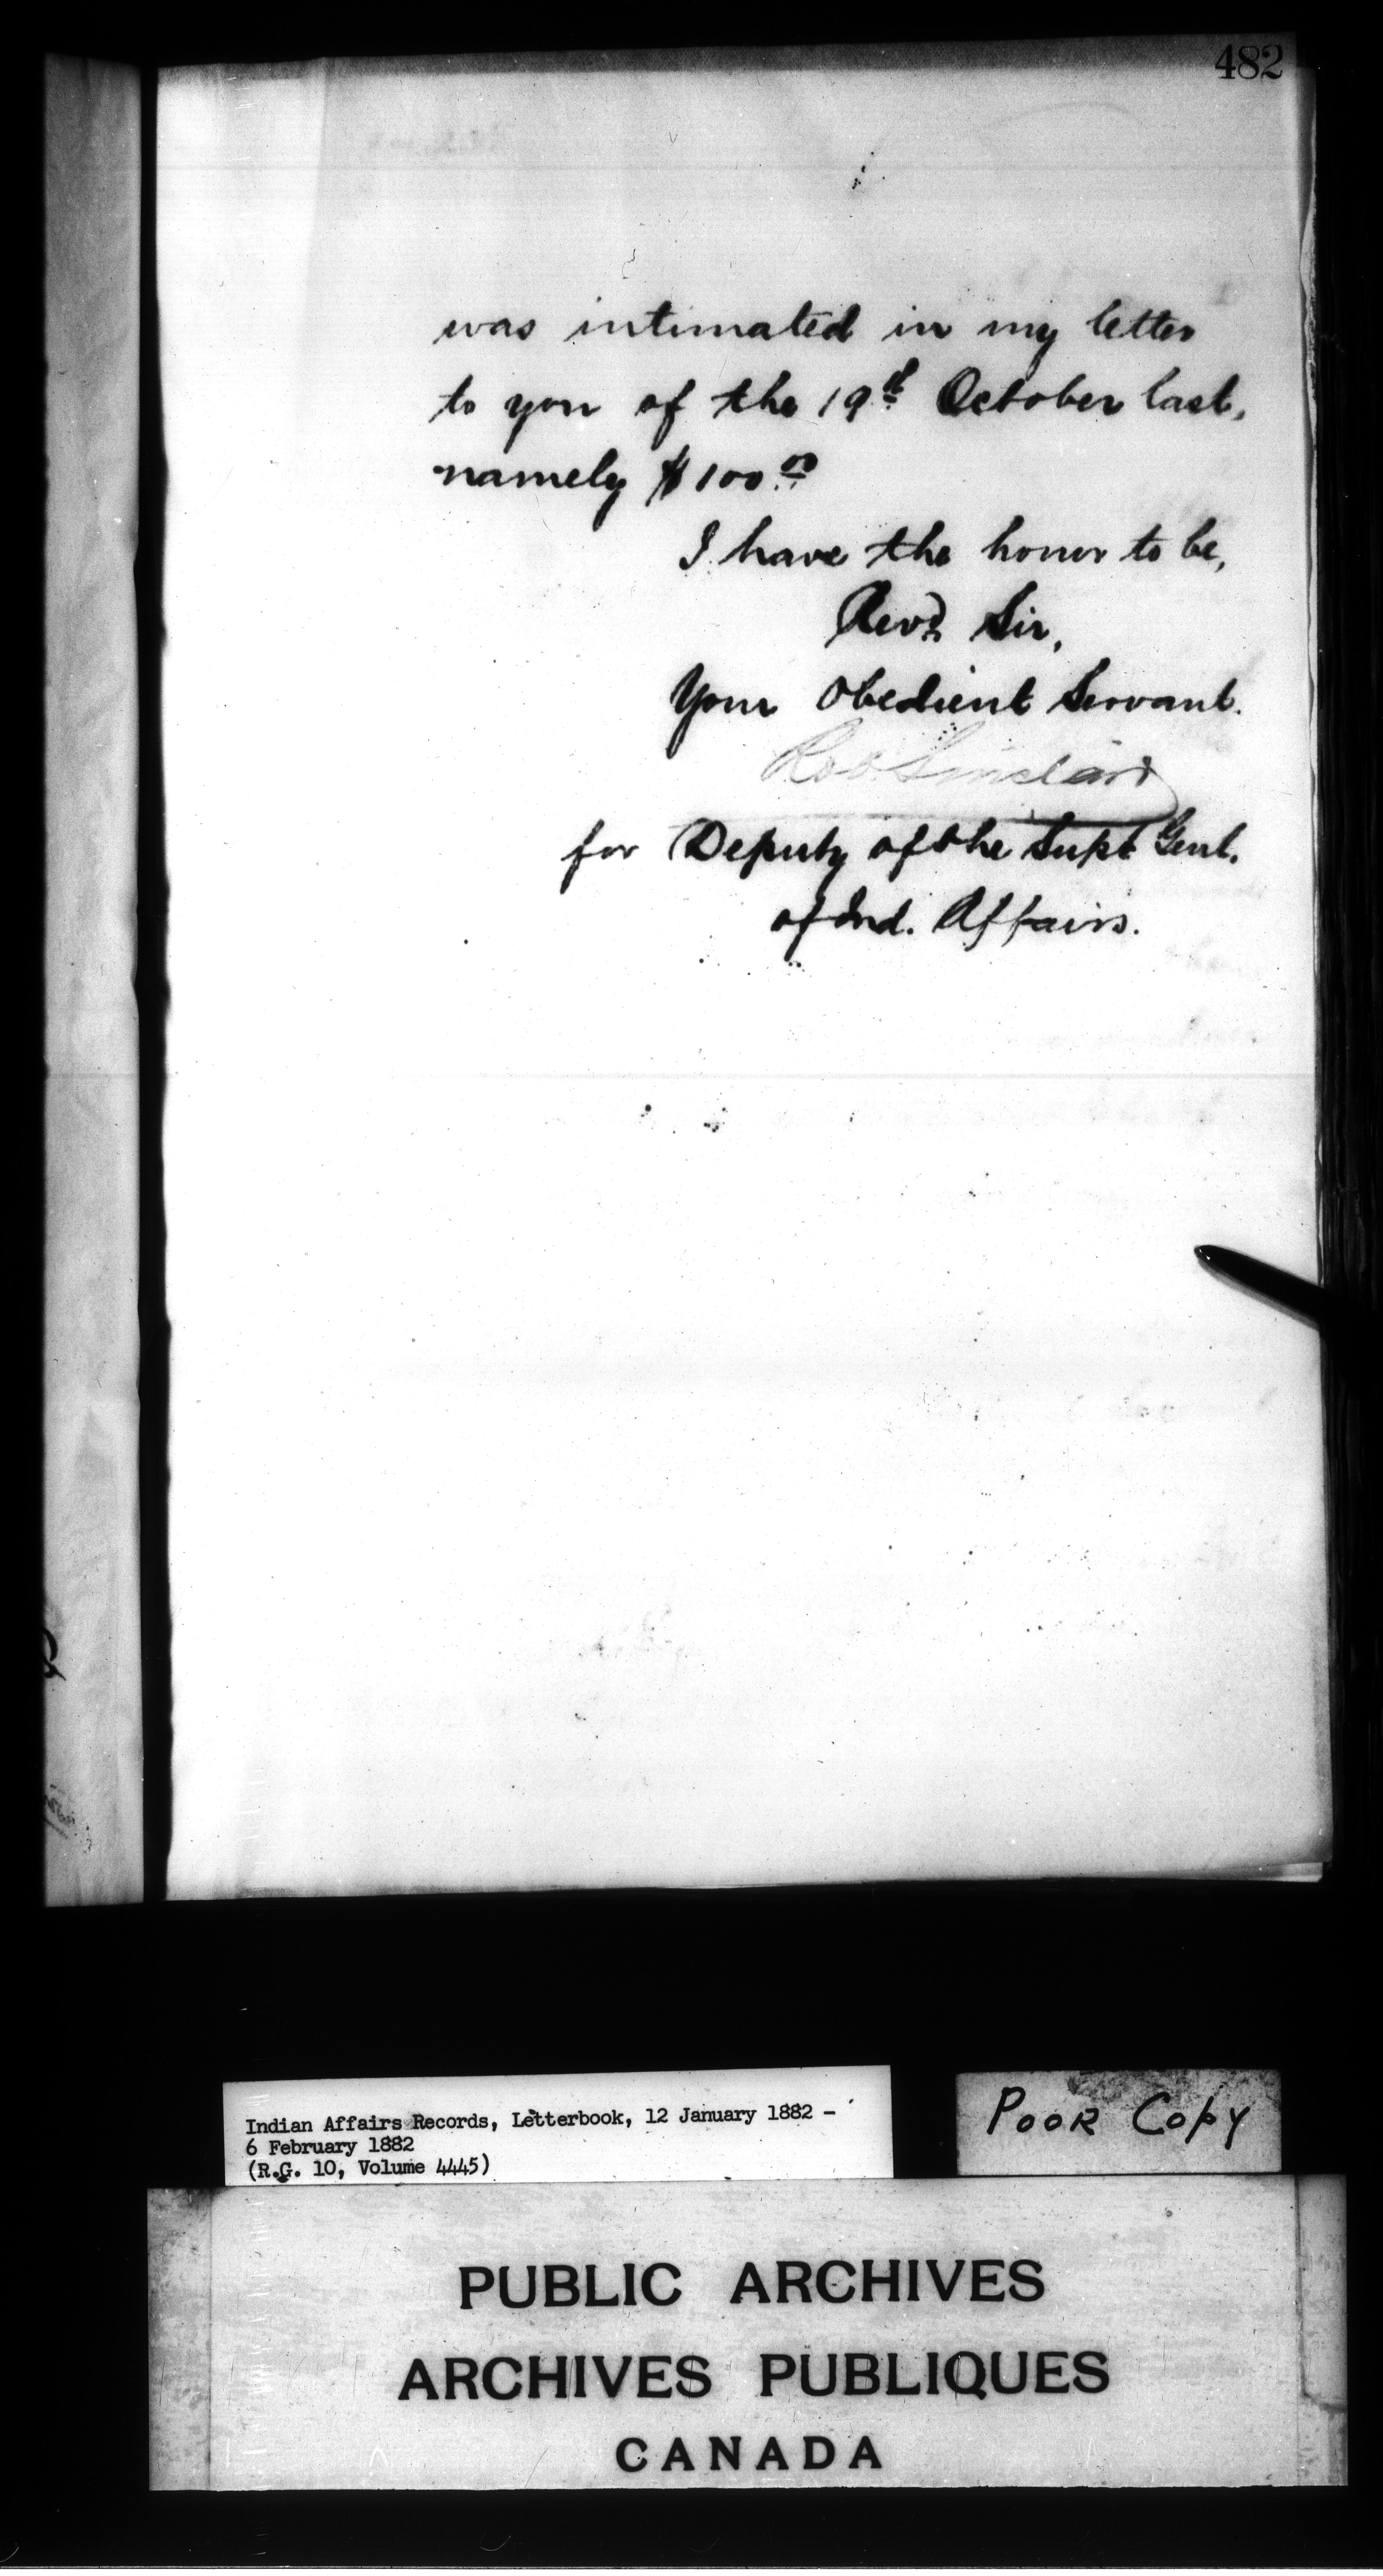 482
was intimated in my letter
to you of the 19th October last,
namely $100.00
I have the honor to be,
Revd. Sir,
Your Obedient Servant.
Rob Sinclair
for Deputy of the Supt Genl.
of Ind. Affairs.
Indian Affairs Records, Letterbook, 12 January 1882 -
6 February 1882
(R.G. 10, Volume 4445)
POOR COPY
PUBLIC ARCHIVES
ARCHIVES PUBLIQUES
CANADA